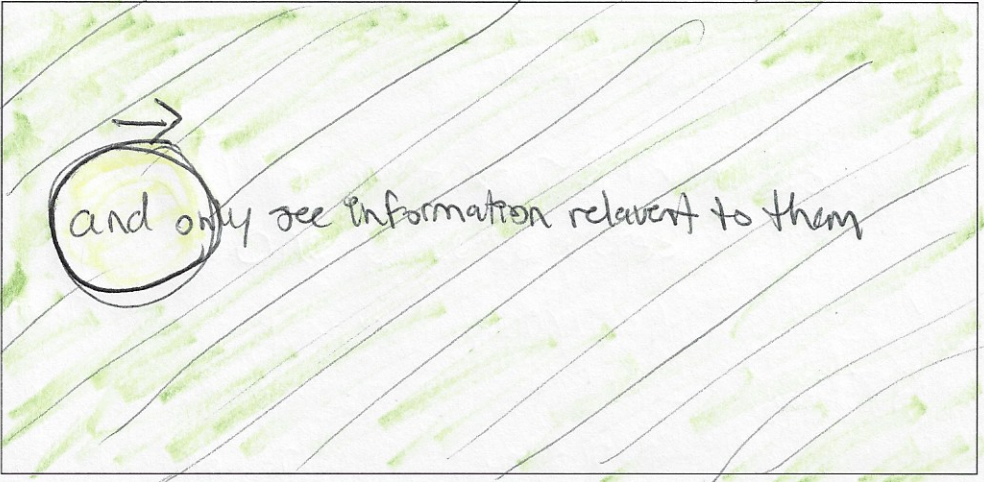 and only see information relavent to them